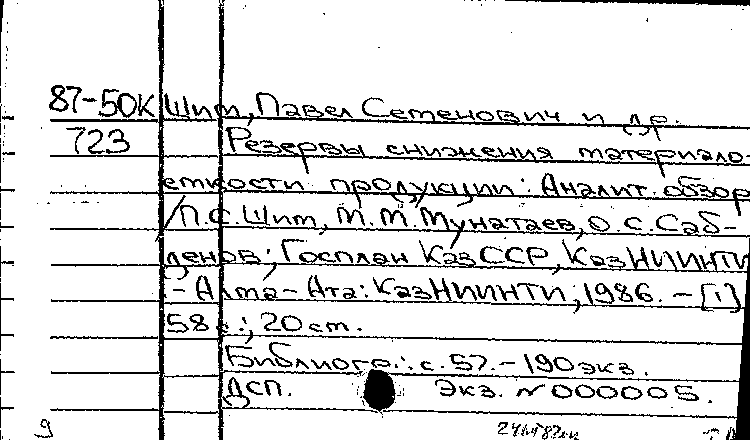 87-50К Шим, Павел Сетенович и др.
723 Резервы снижения материало-
емкости продукции: Аналит. обзор
/П.С.Шим, М.М.Мунатаев, О.С.Саб-
денов; Госплан КазССР, КазНИИНТИ
- Алма-Ата: КазНИИНТИ, 1986. - [1]
58с.; 20 см.
Библиогр.: с. 57. - 190 экз.
ДСП. Экз. № 000005.
9